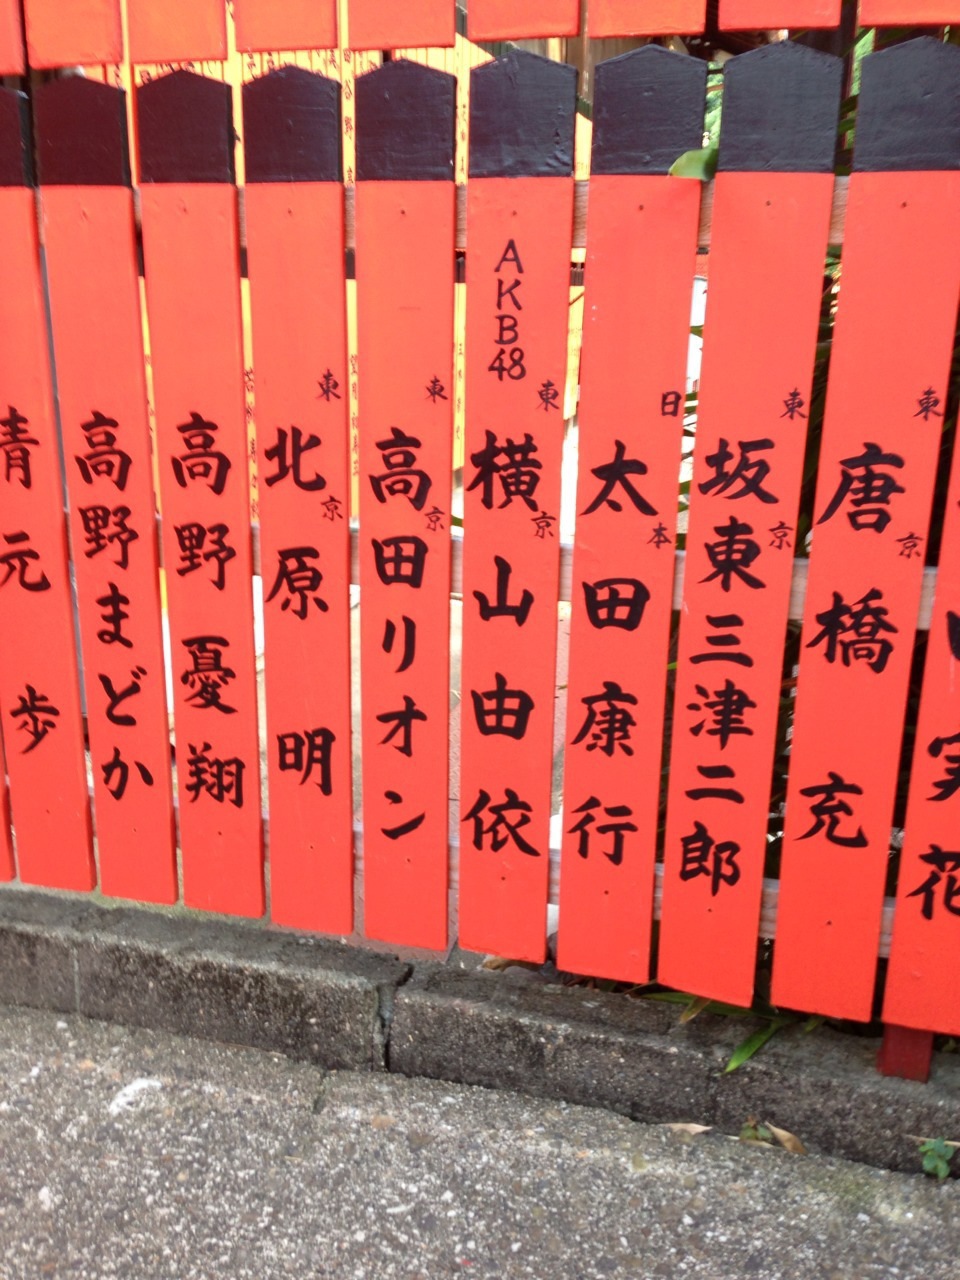 東京
唐橋充
東京
坂東三津二郎
日本
太田康行
AKB48
東京
横山由依
東京
高田リオン
東京
北原明
高野憂翔
高野まどか
青元歩